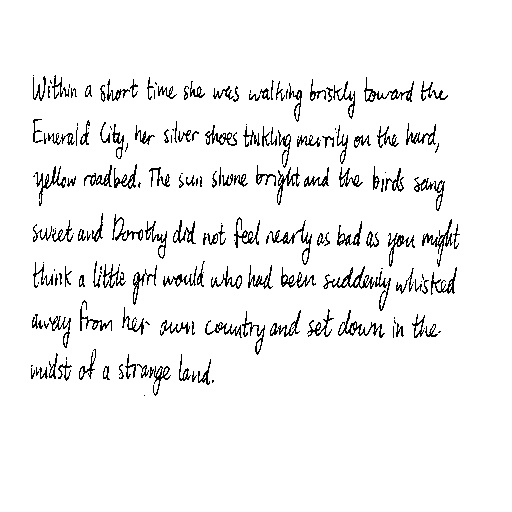 Within a short time she was walking briskly toward the
Emerald City, her silver shoes tinkling merrily on the hard,
yellow roadbed. The sun shone bright and the birds sang
sweet and Dorothy did not feel nearly as bad as you might
think a little girl would who had been suddenly whisked
away from her own country and set down in the
midst of a strange land.